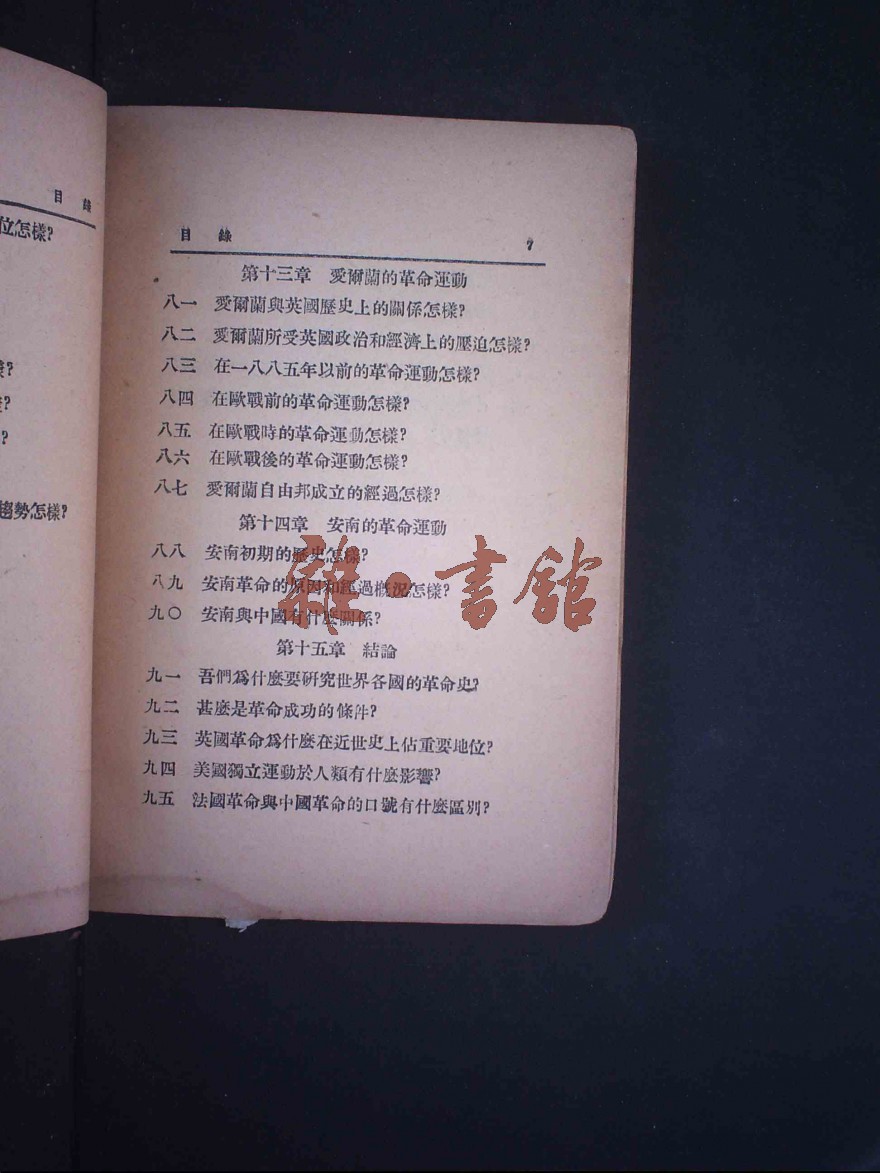 目錄
位怎樣?
?
?
?
趨勢怎樣?
目錄 7
第十三章 愛爾蘭的革命運動
八一 愛爾蘭與英國歷史上的關係怎樣?
八二 愛爾蘭所受英國政治和經濟上的壓迫怎樣?
八三 在一八八五年以前的革命運動怎樣?
八四 在歐戰前的革命運動怎樣?
八五 在歐戰時的革命運動怎樣?
八六 在歐戰後的革命運動怎樣?
八七 愛爾蘭自由邦成立的經過怎樣?
第十四章 安南的革命運動
八八 安南初期的歷史怎樣?
八九 安南革命的原因和經過概況怎樣?
九〇 安南與中國有什麼關係?
雜·書館
第十五章 結論
九一 吾們爲什麼要研究世界各國的革命史?
九二 甚麼是革命成功的條件?
九三 英國革命爲什麼在近世史上佔重要地位?
九四 美國獨立運動於人類有什麼影響?
九五 法國革命與中國革命的口號有什麼區別?